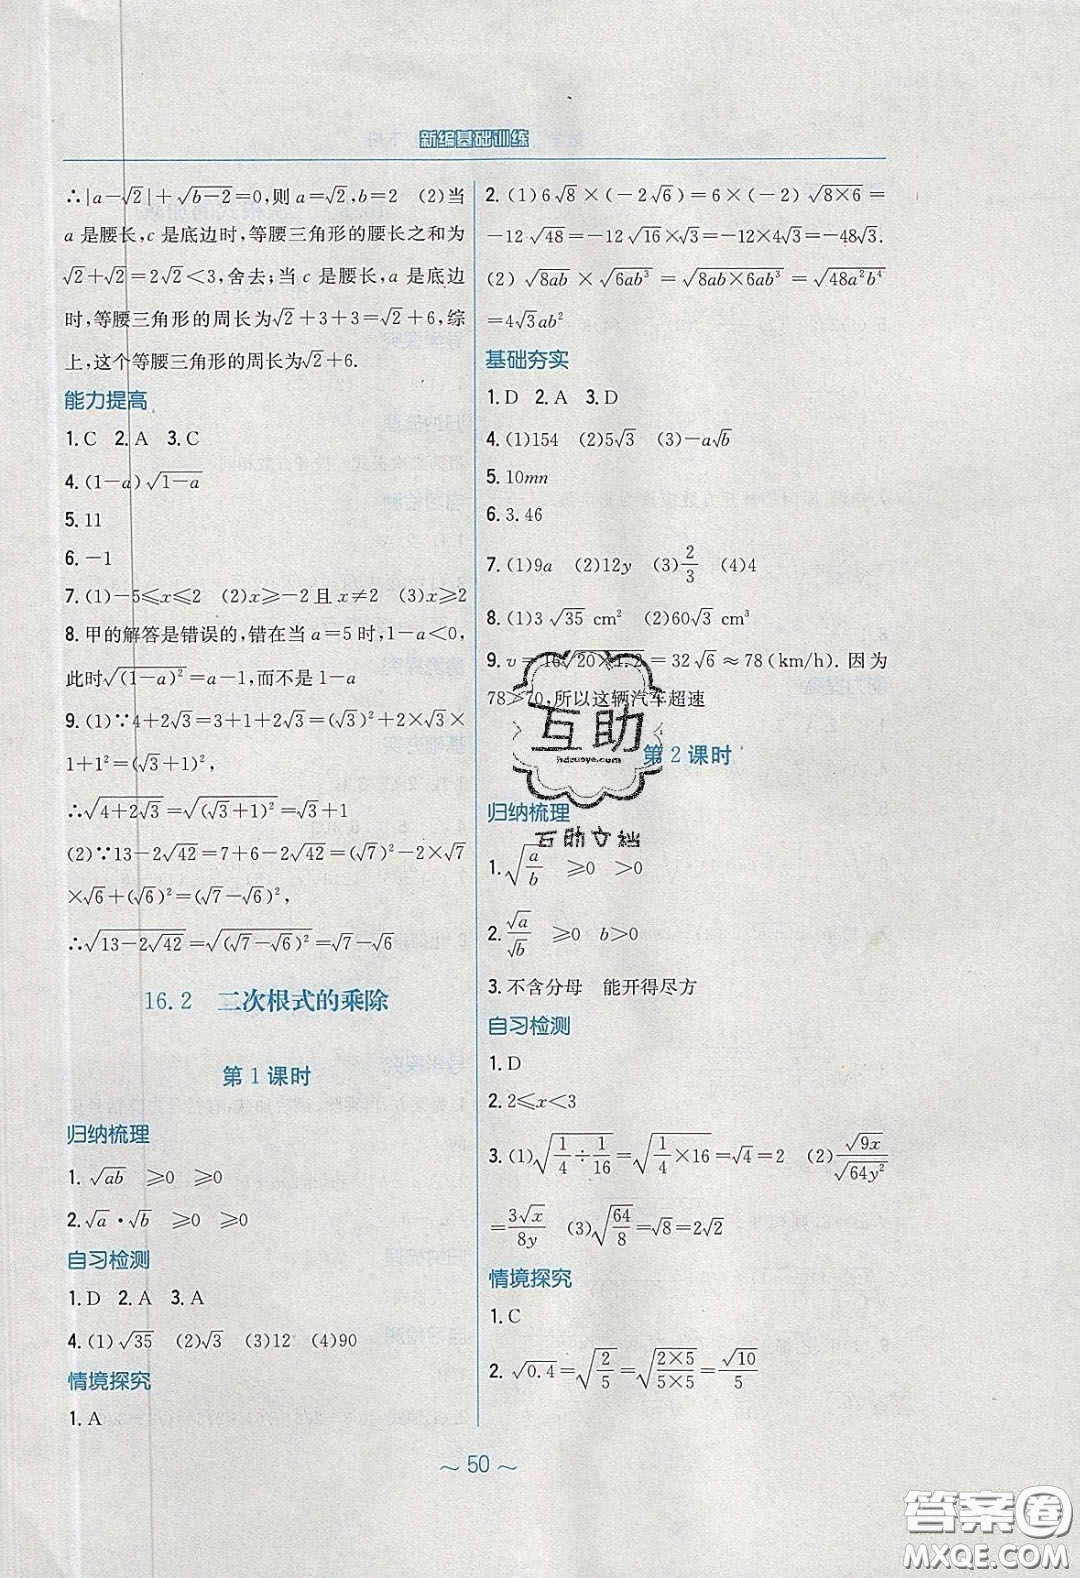 新编基础训练
∴|a-√2|+√(b-2)=0,则a=√2,b=2 (2)当
a是腰长,c是底边时,等腰三角形的腰长之和为
√2+√2=2√2<3,舍去;当c是腰长,a是底边
时,等腰三角形的周长为√2+3+3=√2+6,综
上,这个等腰三角形的周长为√2+6.
能力提高
1. C 2. A 3. C
4. (1-a)√(1-a)
5. 11
6. -1
7. (1)-5⩽x⩽2 (2)x⩾-2且x≠2 (3)x⩾2
8. 甲的解答是错误的,错在当a=5时,1-a<0,
此时√((1-a)²)=a-1,而不是1-a
9. (1)∵4+2√3=3+1+2√3=(√3)²+2×√3×
1+1²=(√3+1)²,
∴√(4+2√3)=√((√3+1)²)=√3+1
(2)∵13-2√42=7+6-2√42=(√7)²-2×√7
×√6+(√6)²=(√7-√6)²,
∴√(13-2√42)=√((√7-√6)²)=√7-√6
16.2 二次根式的乘除
第1课时
归纳梳理
1. √(ab) ⩾0 ⩾0
2. √a·√b ⩾0 ⩾0
自习检测
1. D 2. A 3. A
4. (1)√35 (2)√3 (3)12 (4)90
情境探究
1. A
2. (1)6√8×(-2√6)=6×(-2)√(8×6)=
-12√48=-12√16×√3=-12×4√3=-48√3.
(2)√(8ab)×√(6ab³)=√(8ab×6ab³)=√(48a²b⁴)
=4√3ab²
基础夯实
1. D 2. A 3. D
4. (1)154 (2)5√3 (3)-a√b
5. 10mn
6. 3.46
7. (1)9a (2)12y (3)2/3 (4)4
8. (1)3√35 cm² (2)60√3 cm³
9. v=16√(20×1.2)=32√6≈78(km/h). 因为
78⩾70,所以这辆汽车超速
互助
hdzuoye.com
互助文档
第2课时
归纳梳理
1. √(a/b) ⩾0 >0
2. √a/√b ⩾0 b>0
3. 不含分母 能开得尽方
自习检测
1. D
2. 2⩽x<3
3. (1)√(1/4÷1/16)=√(1/4×16)=√4=2 (2)√(9x)/√(64y²)
=3√x/8y (3)√(64/8)=√8=2√2
情境探究
1. C
2. √0.4=√(2/5)=√((2×5)/(5×5))=√10/5
～50～
答案圈
MXQE.COM